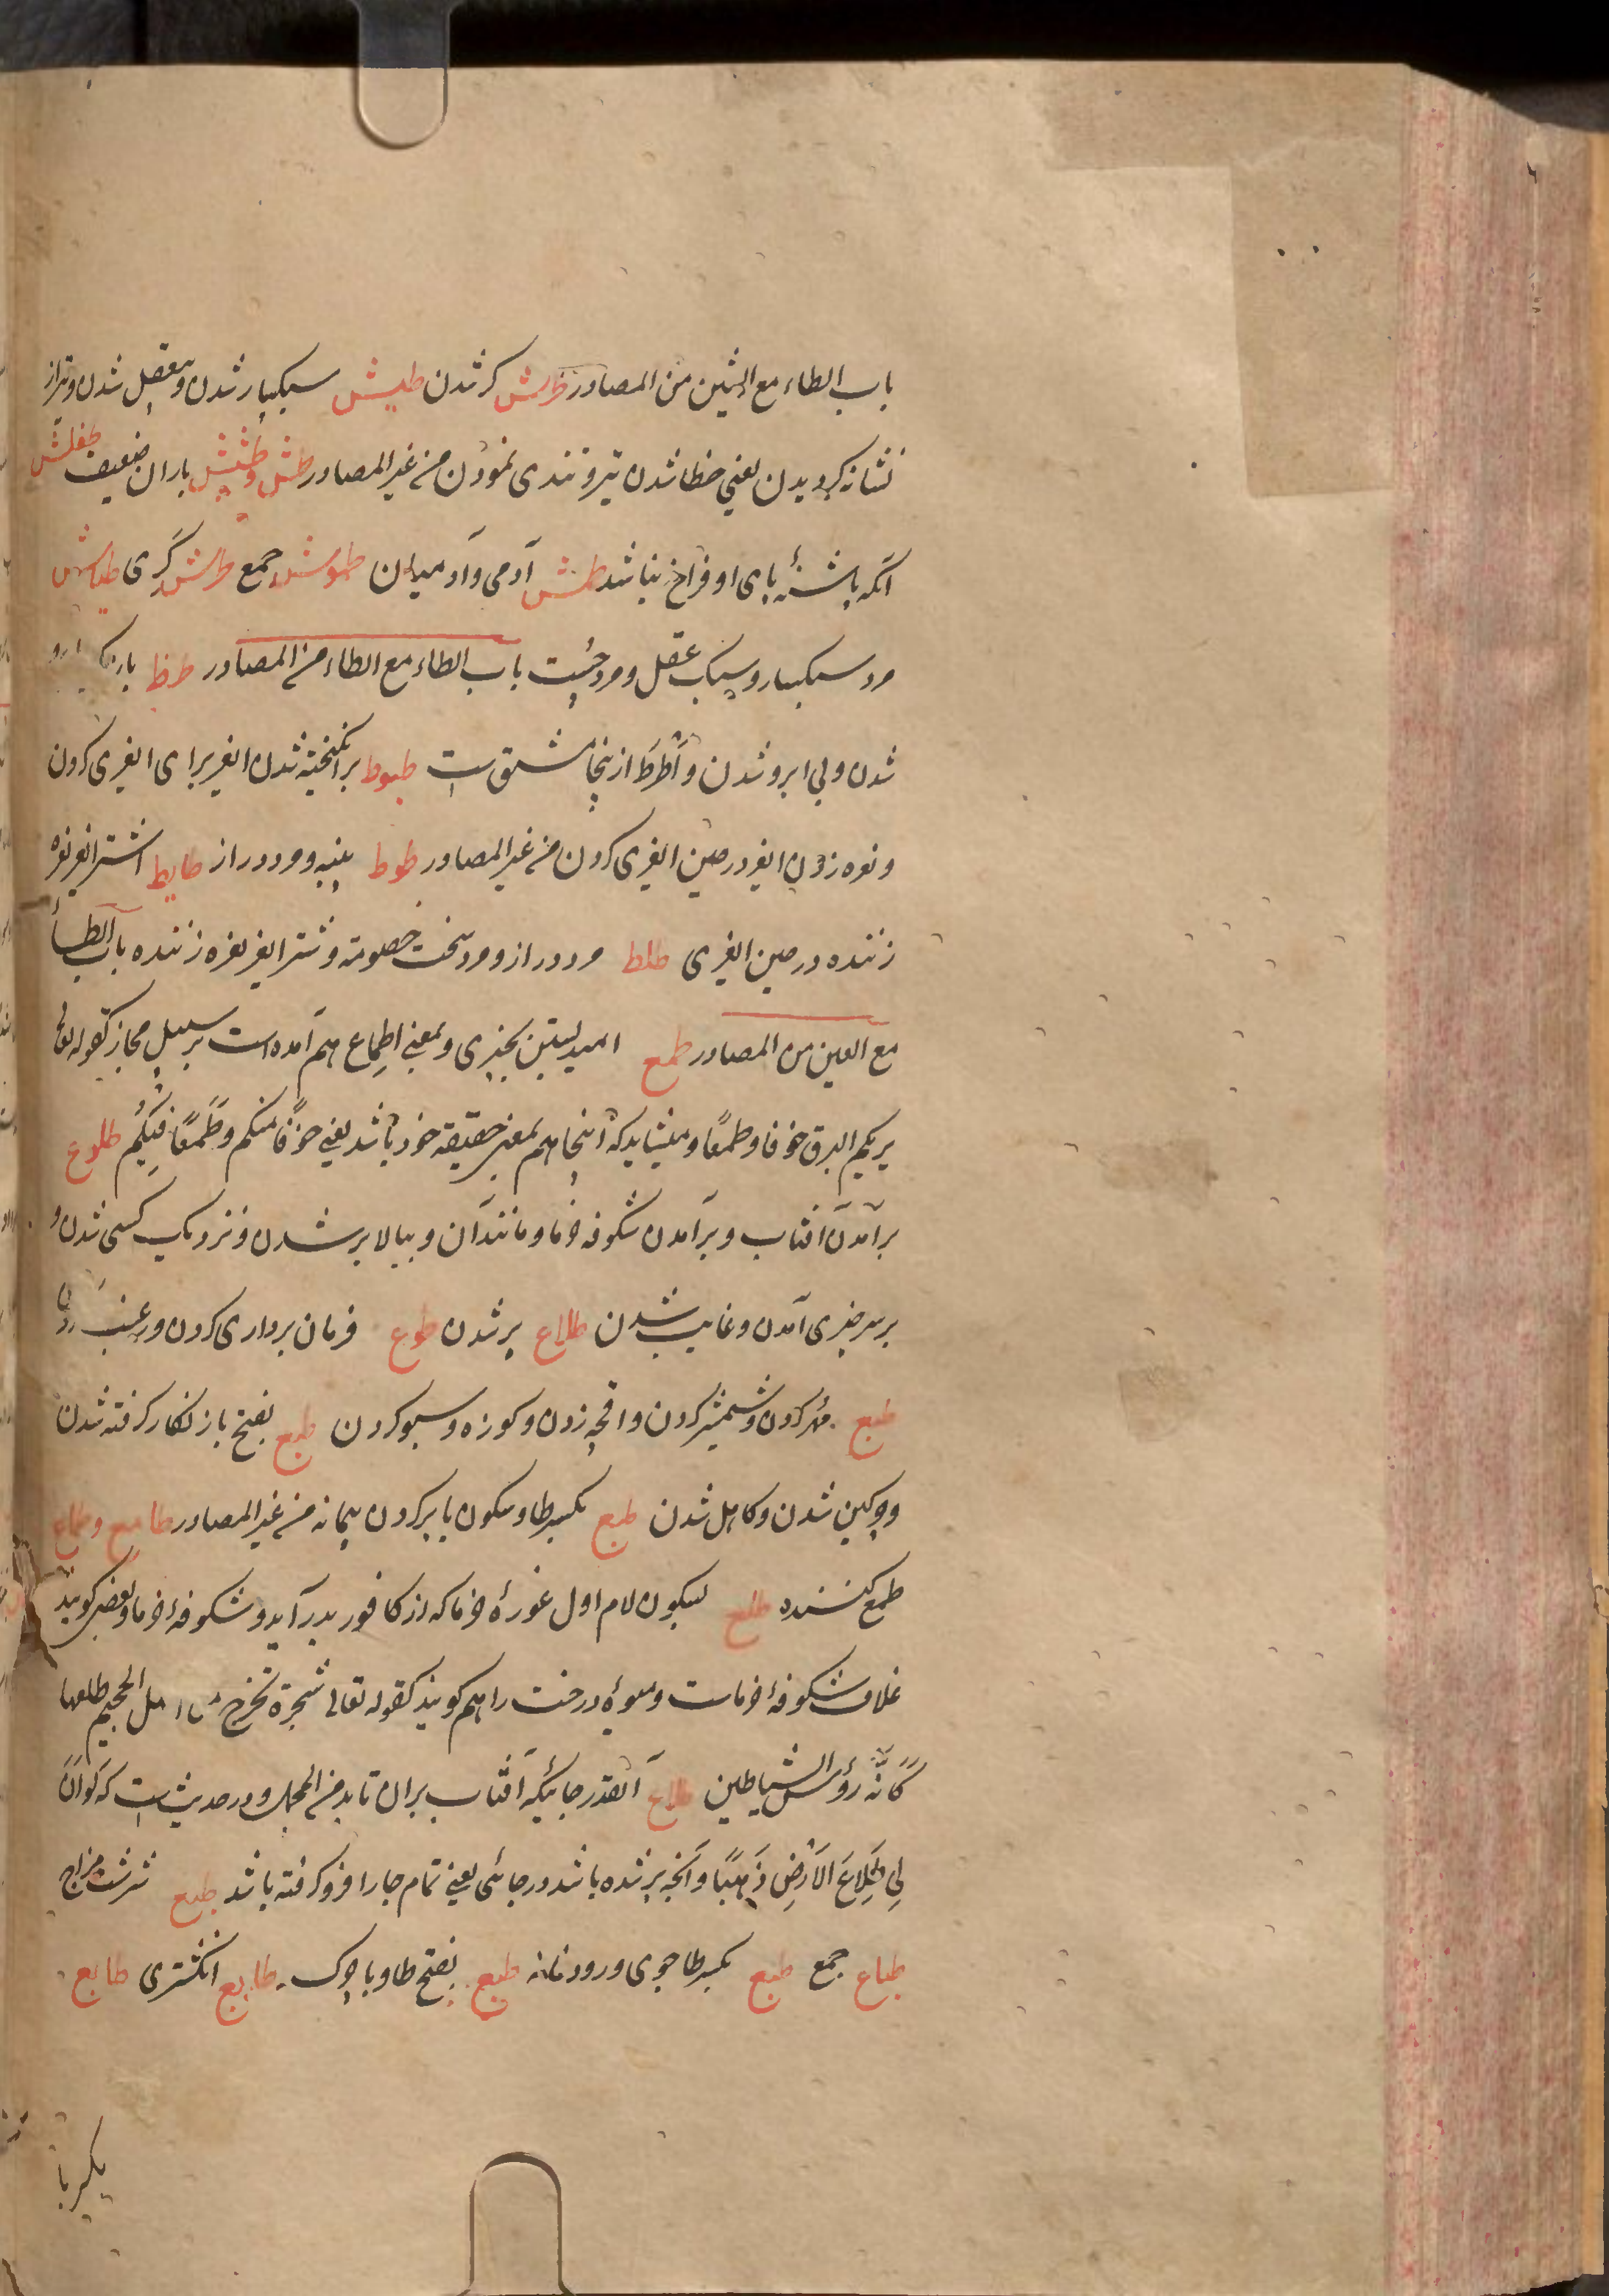 باب الطاء مع الشين من المصادر طرش کر شدن طيش سبکبار شدن و بيعقل شدن و تير از
نشانه گرديدن يعني خطا شدن تير و تندی نمودن من غير المصادر طش و طشيش باران ضعيف طفلش
آنکه پاشنهٔ پای او فراخ باشد طمش آدمی و آدميان طموش جمع طرش کری طياش
مرد سبکبار و سبک عقل و مرد باب الطاء مع الطاء من المصادر طرط باريک ابرو
شدن و بی ابرو شدن و أَطْرَط ازينجا مشتق است طيوط برانگيخته شدن اشتر برای اشتری کردن
و نعره زدن در حين کردن من غير المصادر طوط پنبه و مرد دراز طايط اشتر نعره
زننده در حين طلط مرد دراز و مرد سخت خصومة و شتر نعره زننده باب الطاء
مع العين من المصادر طمع اميد بستن بچيزی و بمعنی اِطماع هم آمده است بر سبيل مجاز کقوله تعالی
يريکم البرق خوفا و طمعًا و ميشايد که اينجا هم بمعنی حقيقة خود باشد يعنی خَوْفًا منکم وَطَمَعًا فِيکُم طلوع
برآمدن آفتاب و برآمدن شکوفه خرما و مانند آن و ببالا بر شدن و نزديک کسی شدن و
بر سر چيزی آمدن و غايب شدن طلاع پر شدن طوع فرمان برداری کردن و رغبت کردن
طبع مُهر کردن و شمشير کردن و اقچه زدن و کوزه و سبو کردن طبع بفتح با زنگار گرفته شدن
و چرکين شدن و کاهل شدن طبع بکسر طا و سکون با پر کردن پيمانه من غير المصادر طامع و طماع
طمع کننده طلع بسکون لام اول غورهٔ خرما که از کافور بدر آيد و شکوفهٔ خرما و بعضی گويند
غلاف شکوفهٔ خرماست و ميوهٔ درخت را هم گويند کقوله تعالی شجرة تخرج فی اصل الجحيم طلعها
کَأَنَّهُ رُؤُسُ الشياطين طلاع آنقدر جائيکه آفتاب بران تابد من المجمل و در حديث است که لَوْ اَنَّ
لِی طِلَاعَ الاَرْضِ ذَهَبًا و آنچه پر شده باشد در جائی يعنی تمام جا را فرو گرفته باشد طبع سرشت مزاج
طباع جمع طبع بکسر طا جوی و رودخانه طبع بفتح طا و با چرک طابع انگشتری طابع
بکسر با